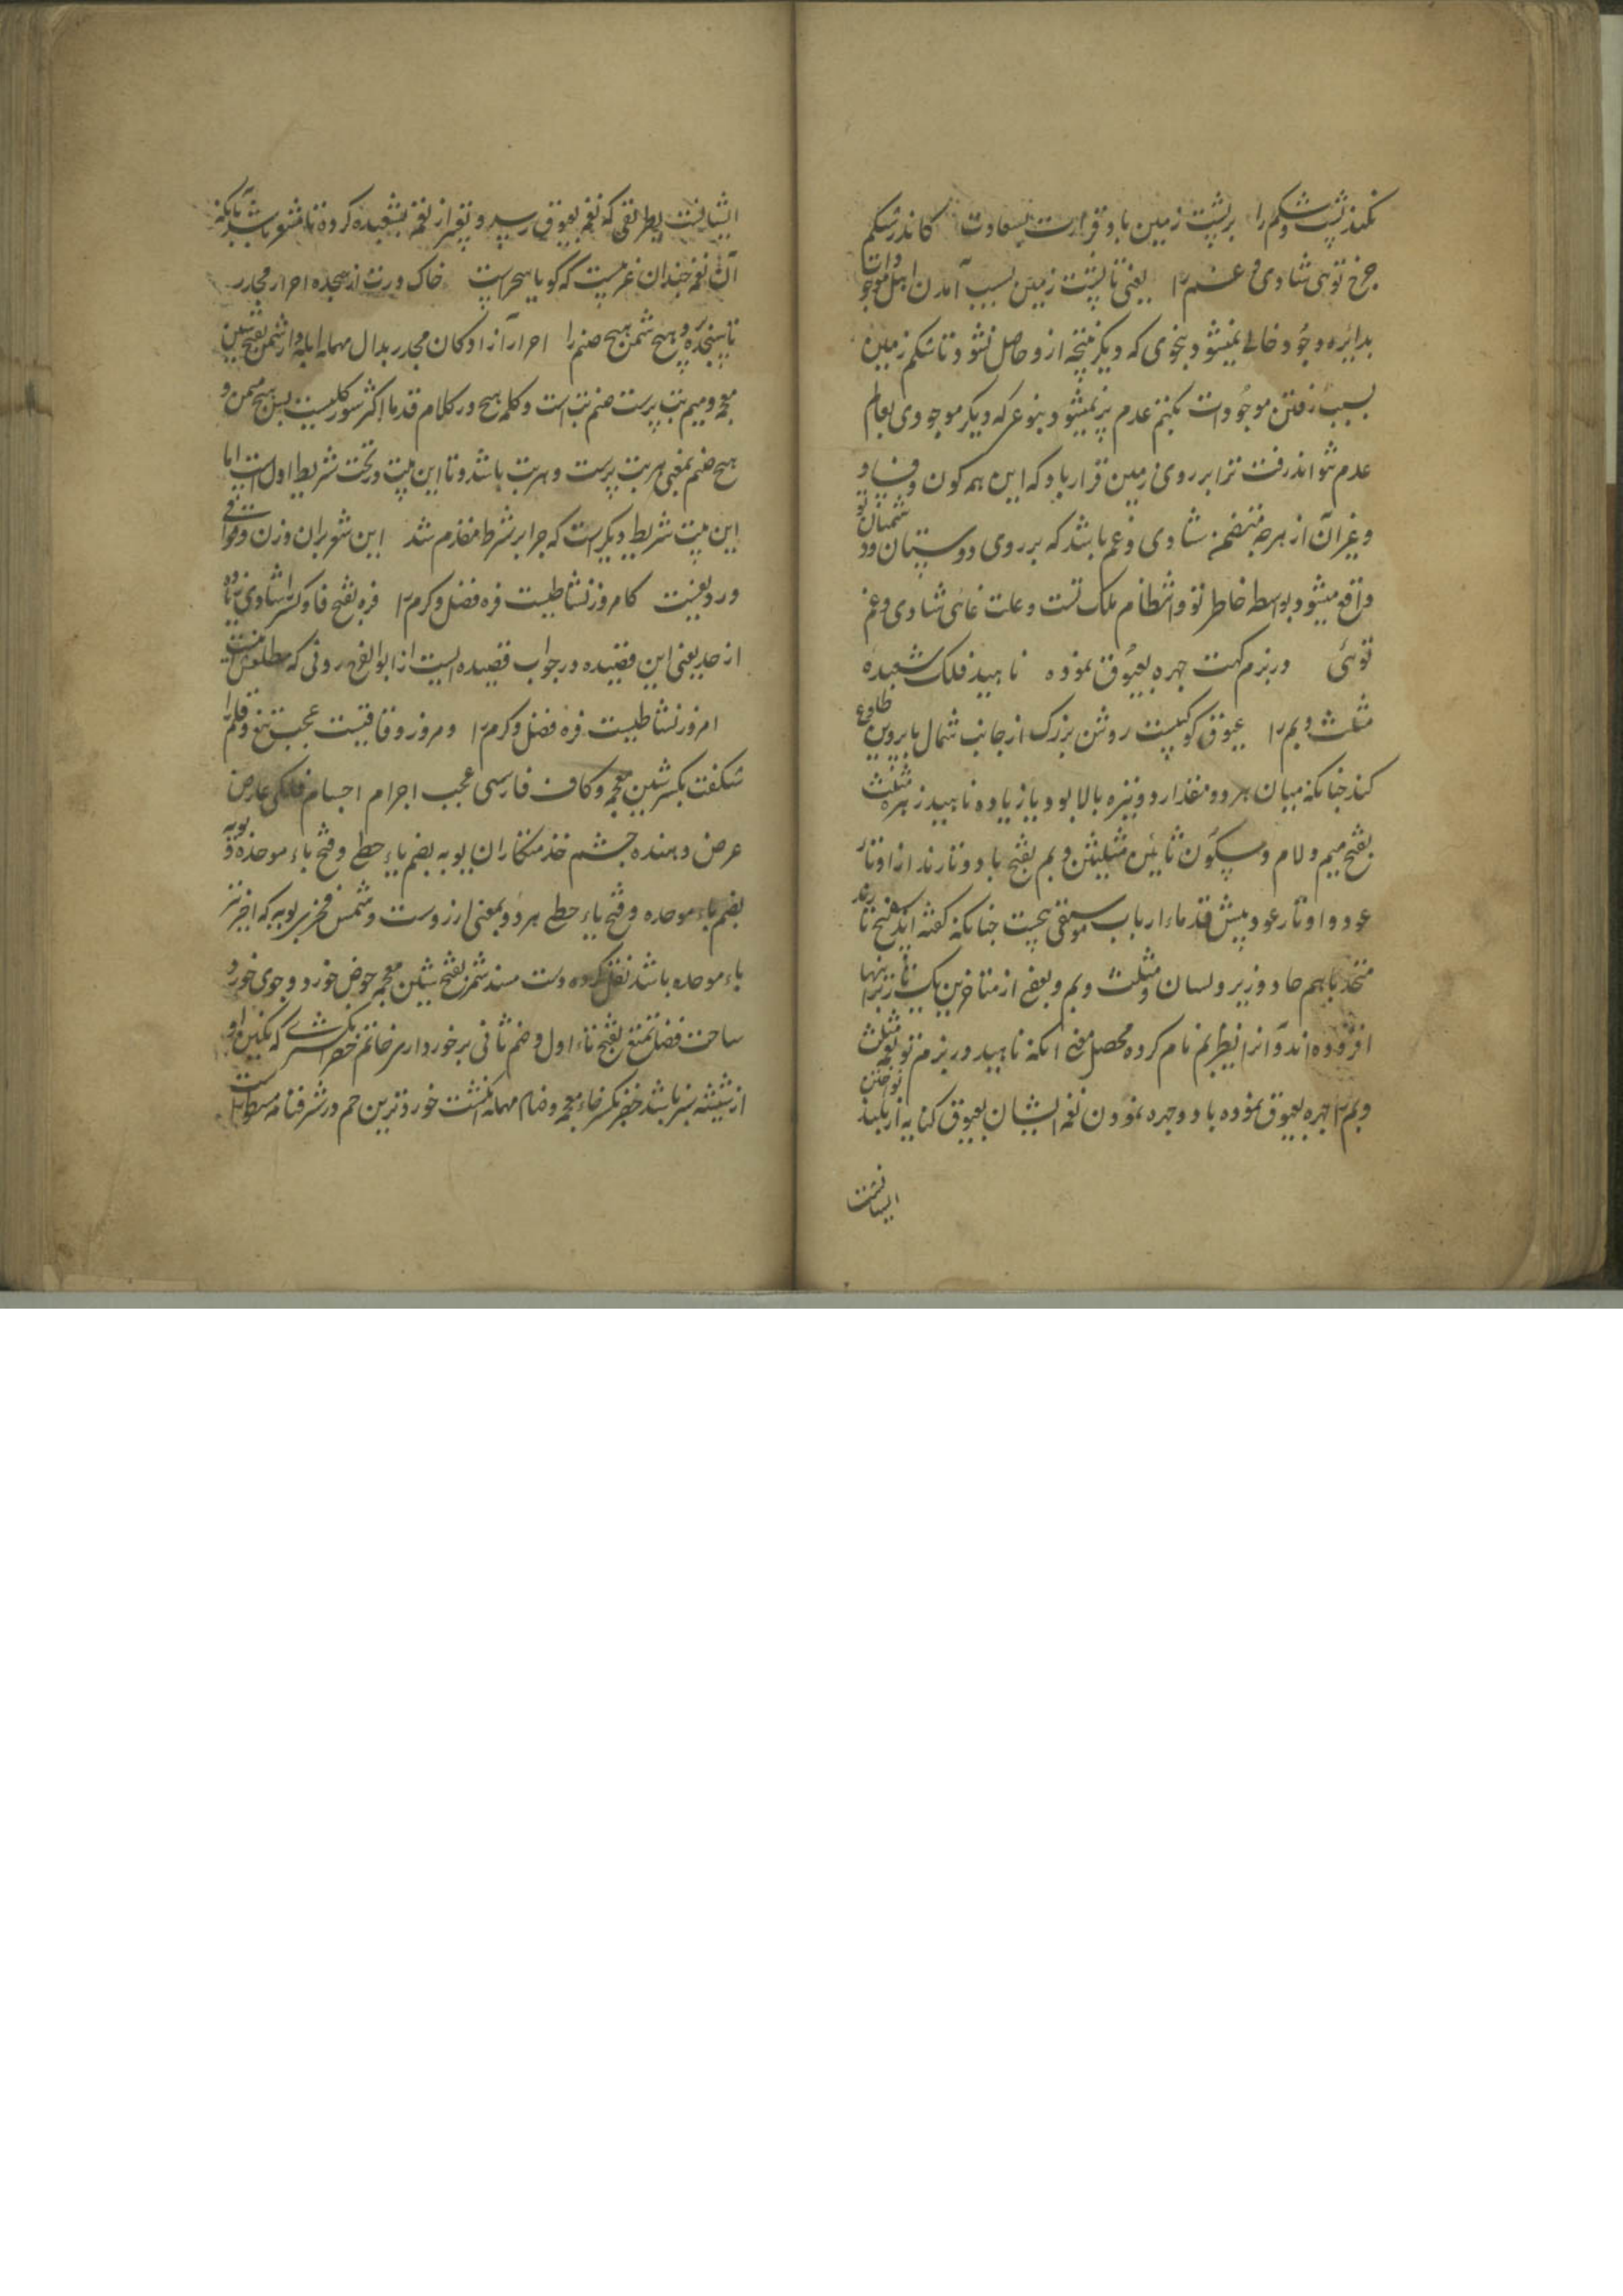 نکند پشت و شکم را بر پشت زمین باد قرارت بسعادت کاندر شکم
چرخ توئی شادی و غم را یعنی تا پشت زمین بسبب آمدن اهل موجودات
بدایره وجود خالی نمیشود بنحوی که دیگر نتیجه ازو حاصل نشود و تا شکم زمین
بسبب رفتن موجودات بکتم عدم پر نمیشود بنوعی که دیگر موجودی بعالم
عدم نتواند رفت ترا بر روی زمین قرار باد که این همه کون و فساد
و غیر آن از هر چه متضمن شادی و غم باشد که بر روی دوستان و دشمنان تو
واقع میشود بواسطه خاطر تو و انتظام ملک تست و علت غائی شادی و غم
توئی در بزم کهت چهره بعیوق نموده ناهید فلک شعبده
مثلث و بم را عیوق کوکبیست روشن بزرک از جانب شمال با پروین طلوع
کند چنانکه میان هر دو مقدار دو نیزه بالا بود یا زیاده ناهید زهره مثلث
بفتح میم و لام و سکون ثائین مثلثین و بم بفتح با دو تارند از اوتار
عود و اوتار عود پیش قدماء ارباب موسیقی پنجست چنانکه کفته اند پنج تارند
متحد باهم حاد و زیر و لسان و مثلث و بم و بعضی از متاخرین یک تار برینها
افزوده اند و آنرا نام کرده محصل معنی انکه ناهید در بزم تو نغمه مثلث
و بم را چهره بعیوق نموده باد و چهره نمودن نغمه ایشان بعیوق کنایه از بلند نواختن
ایشانست
ایشانست بطریقی که نغمه بعیوق رسد و تعبیر از نغمه بشعبده کرده تا مشعر باشد بآنکه
آن نغمه چندان غریبست که کویا سحراست خاک درت از سجده احرار مجدر
تا سجده برد هیچ شمن هیچ صنم را احرار آزادکان مجدر بدال مهمله ابله دار شمن بفتح شین
معجمه و میم بت پرست صنم بت است و کلمه هیچ در کلام قدما اکثر سور کلیست پس هیچ شمن و
هیچ صنم بمعنی هر بت پرست و هر بت باشد و تا این بیت در تحت شریط اول است اما
این بیت شریط دیکر است که جزا بر شرط مقدم شد این شعر بران وزن و قوافی
و ردیفست کامروز نشاطیست فره فضل و کرم را فره بفتح فا و کسر را شادی زیاده
از حد یعنی این قصیده در جواب قصیده ایست از ابو الفرج رونی که مطلعش اینست
امروز نشاطیست فره فضل و کرم را و امروز وفاقیست عجب تیغ و قلم را
شکفت بکسر شین معجمه و کاف فارسی عجب اجرام اجسام فلکی عارض
عرض دهنده چشم خدمتکاران یوبه بضم یاء حطی و فتح باء موحده و بویه
بضم باء موحده و فتح یاء حطی هر دو بمعنی ارزوست و شمس فخری یوبه که اخر نیز
باء موحده باشد نقل کرده دست مسند شمر بفتح شین معجمه حوض خورد و جوی خورد
ساحت فضا تمتع بفتح تاء اول و ضم ثانی برخورداری خاتم خضرا انکشتری که نکین او
از شیشه سبز باشد خنصر بکسر خاء معجمه و صاد مهمله انکشت خوردترین جم در شرفنامه مسطور است